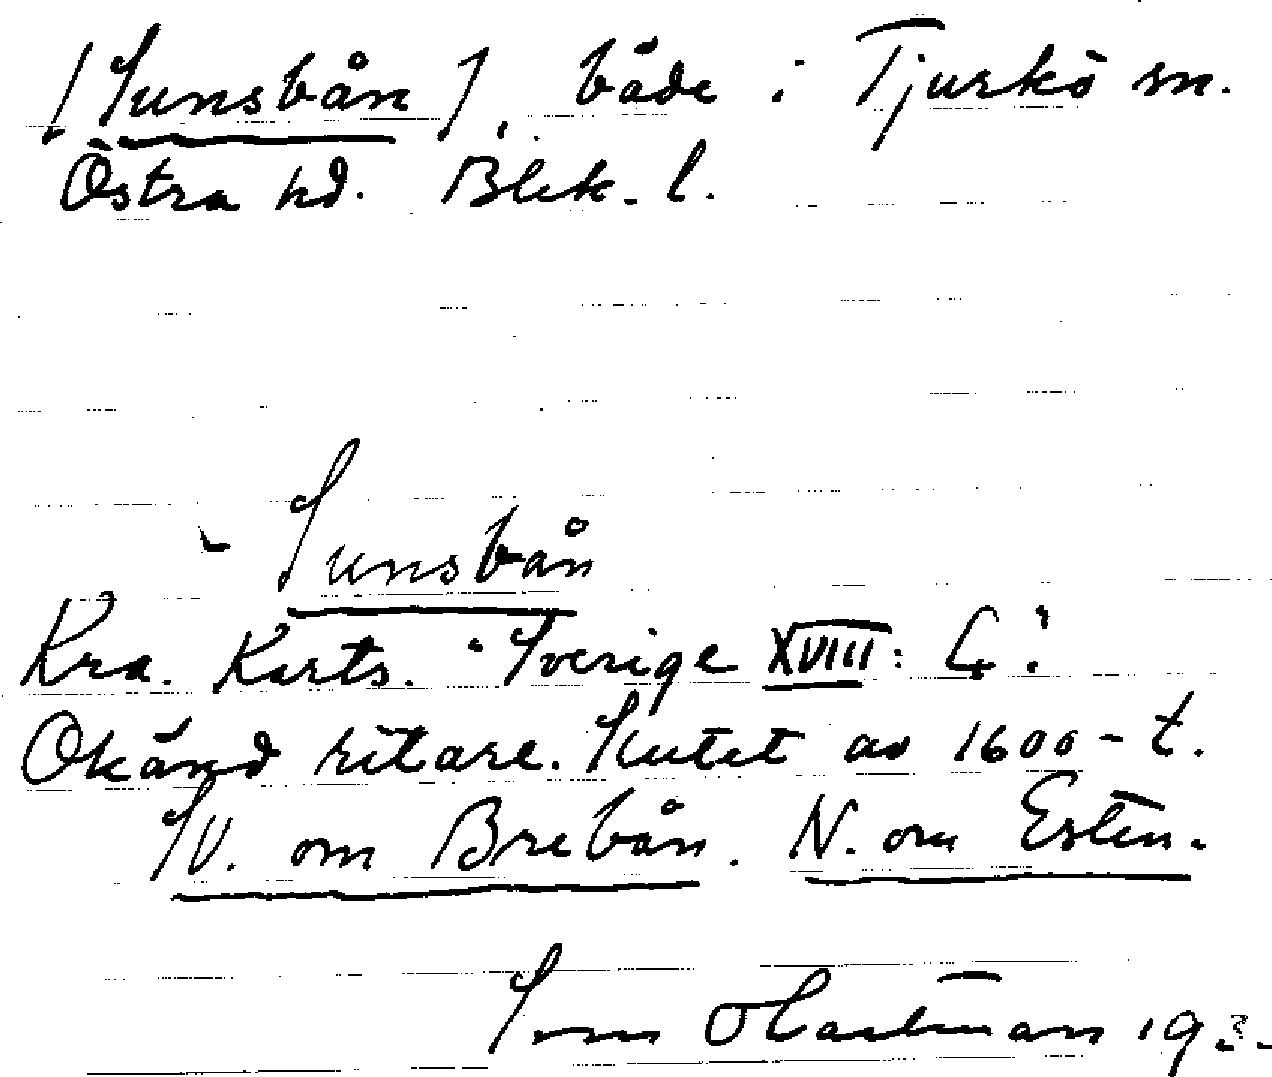 [Sunsbån], både i Tjurkö sn.
Östra hd. Blek. l.
Sunsbån
Kra. Karts. Sverige XVIII: C4:
Okänd ritare. Slutet av 1600-t.
SV. om Brebån. N. om Esten.
Sven Hartman 193